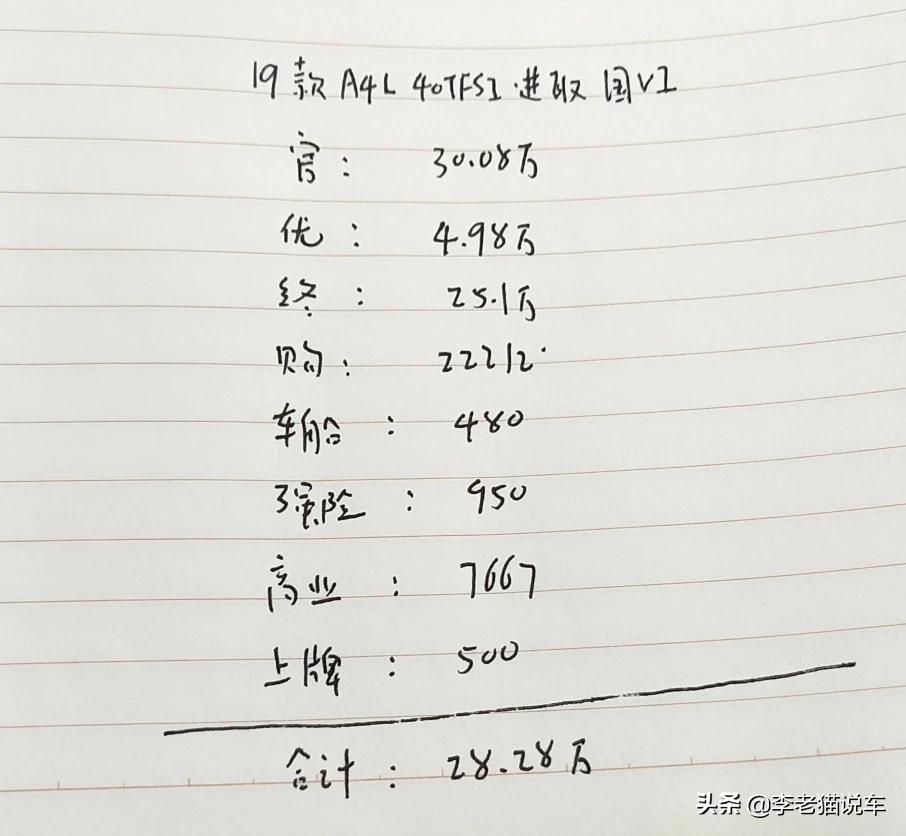 19款 A4L 40TFSI 进取 国VI
官： 30.08万
优： 4.98万
终： 25.1万
购： 22212
车船： 480
强险： 950
商业： 7667
上牌： 500
合计： 28.28万
头条 @李老猫说车